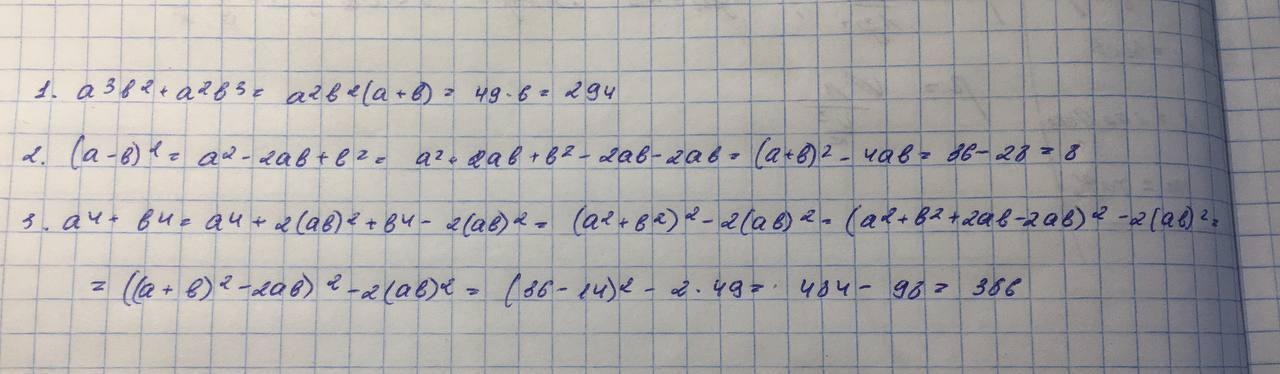 1. a³b² + a²b³ = a²b²(a+b) = 49·6 = 294
2. (a-b)² = a² - 2ab + b² = a² + 2ab + b² - 2ab - 2ab = (a+b)² - 4ab = 36 - 28 = 8
3. a⁴ + b⁴ = a⁴ + 2(ab)² + b⁴ - 2(ab)² = (a² + b²)² - 2(ab)² = (a² + b² + 2ab - 2ab)² - 2(ab)² =
= ((a + b)² - 2ab)² - 2(ab)² = (36 - 14)² - 2·49 = 484 - 98 = 386